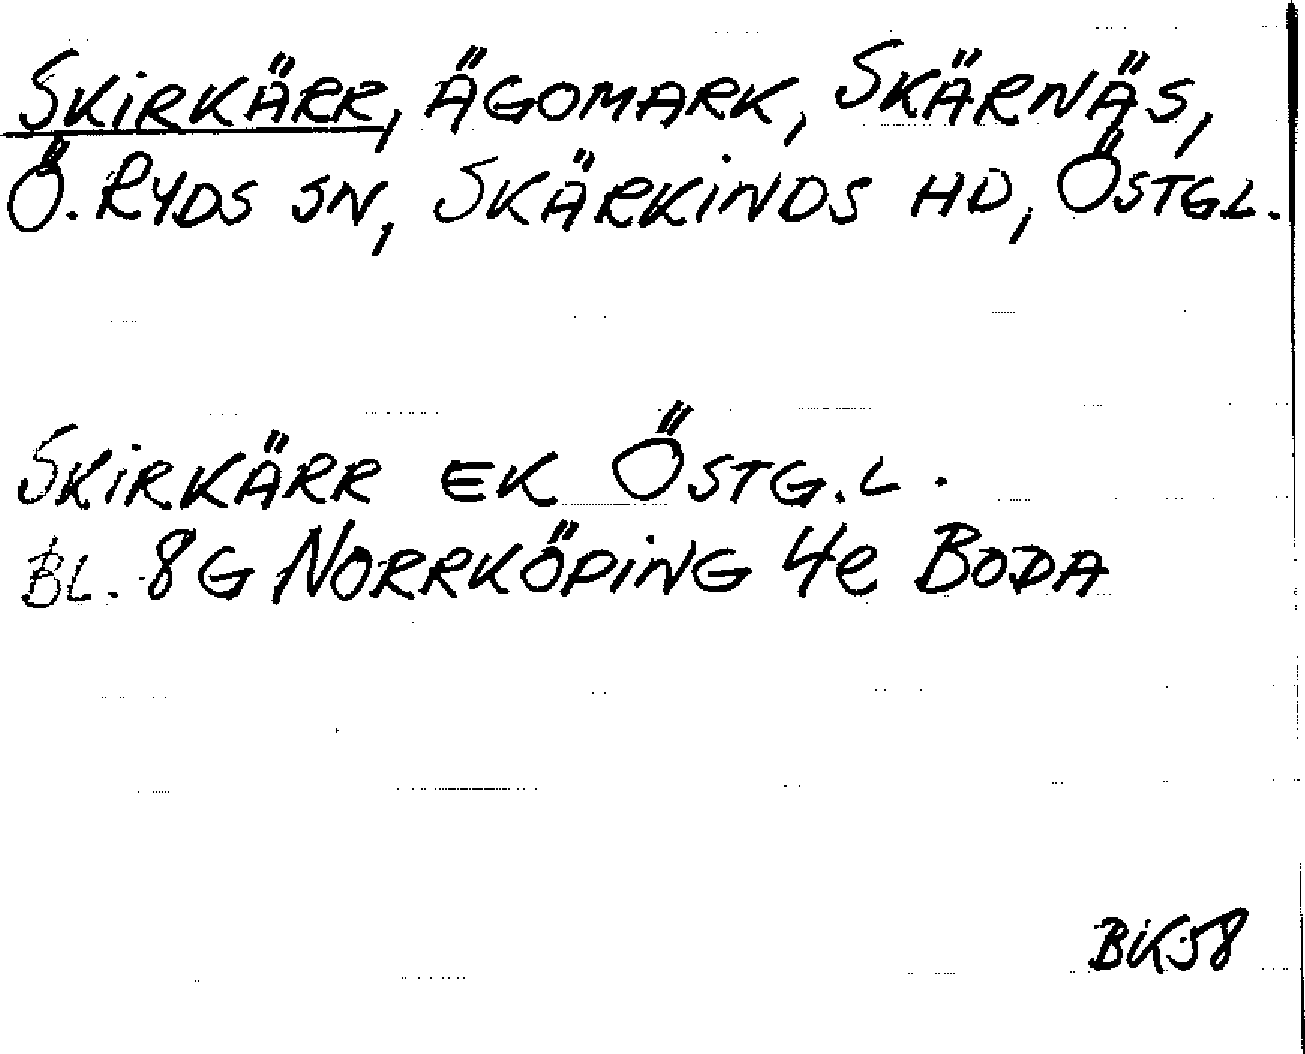 SKIRKÄRR, ÄGOMARK, SKÄRNÄS,
Ö. RYDS SN, SKÄRKINDS HD, ÖSTGL.
SKIRKÄRR EK ÖSTG.L.
BL. 8G NORRKÖPING 4e BODA
BiK58